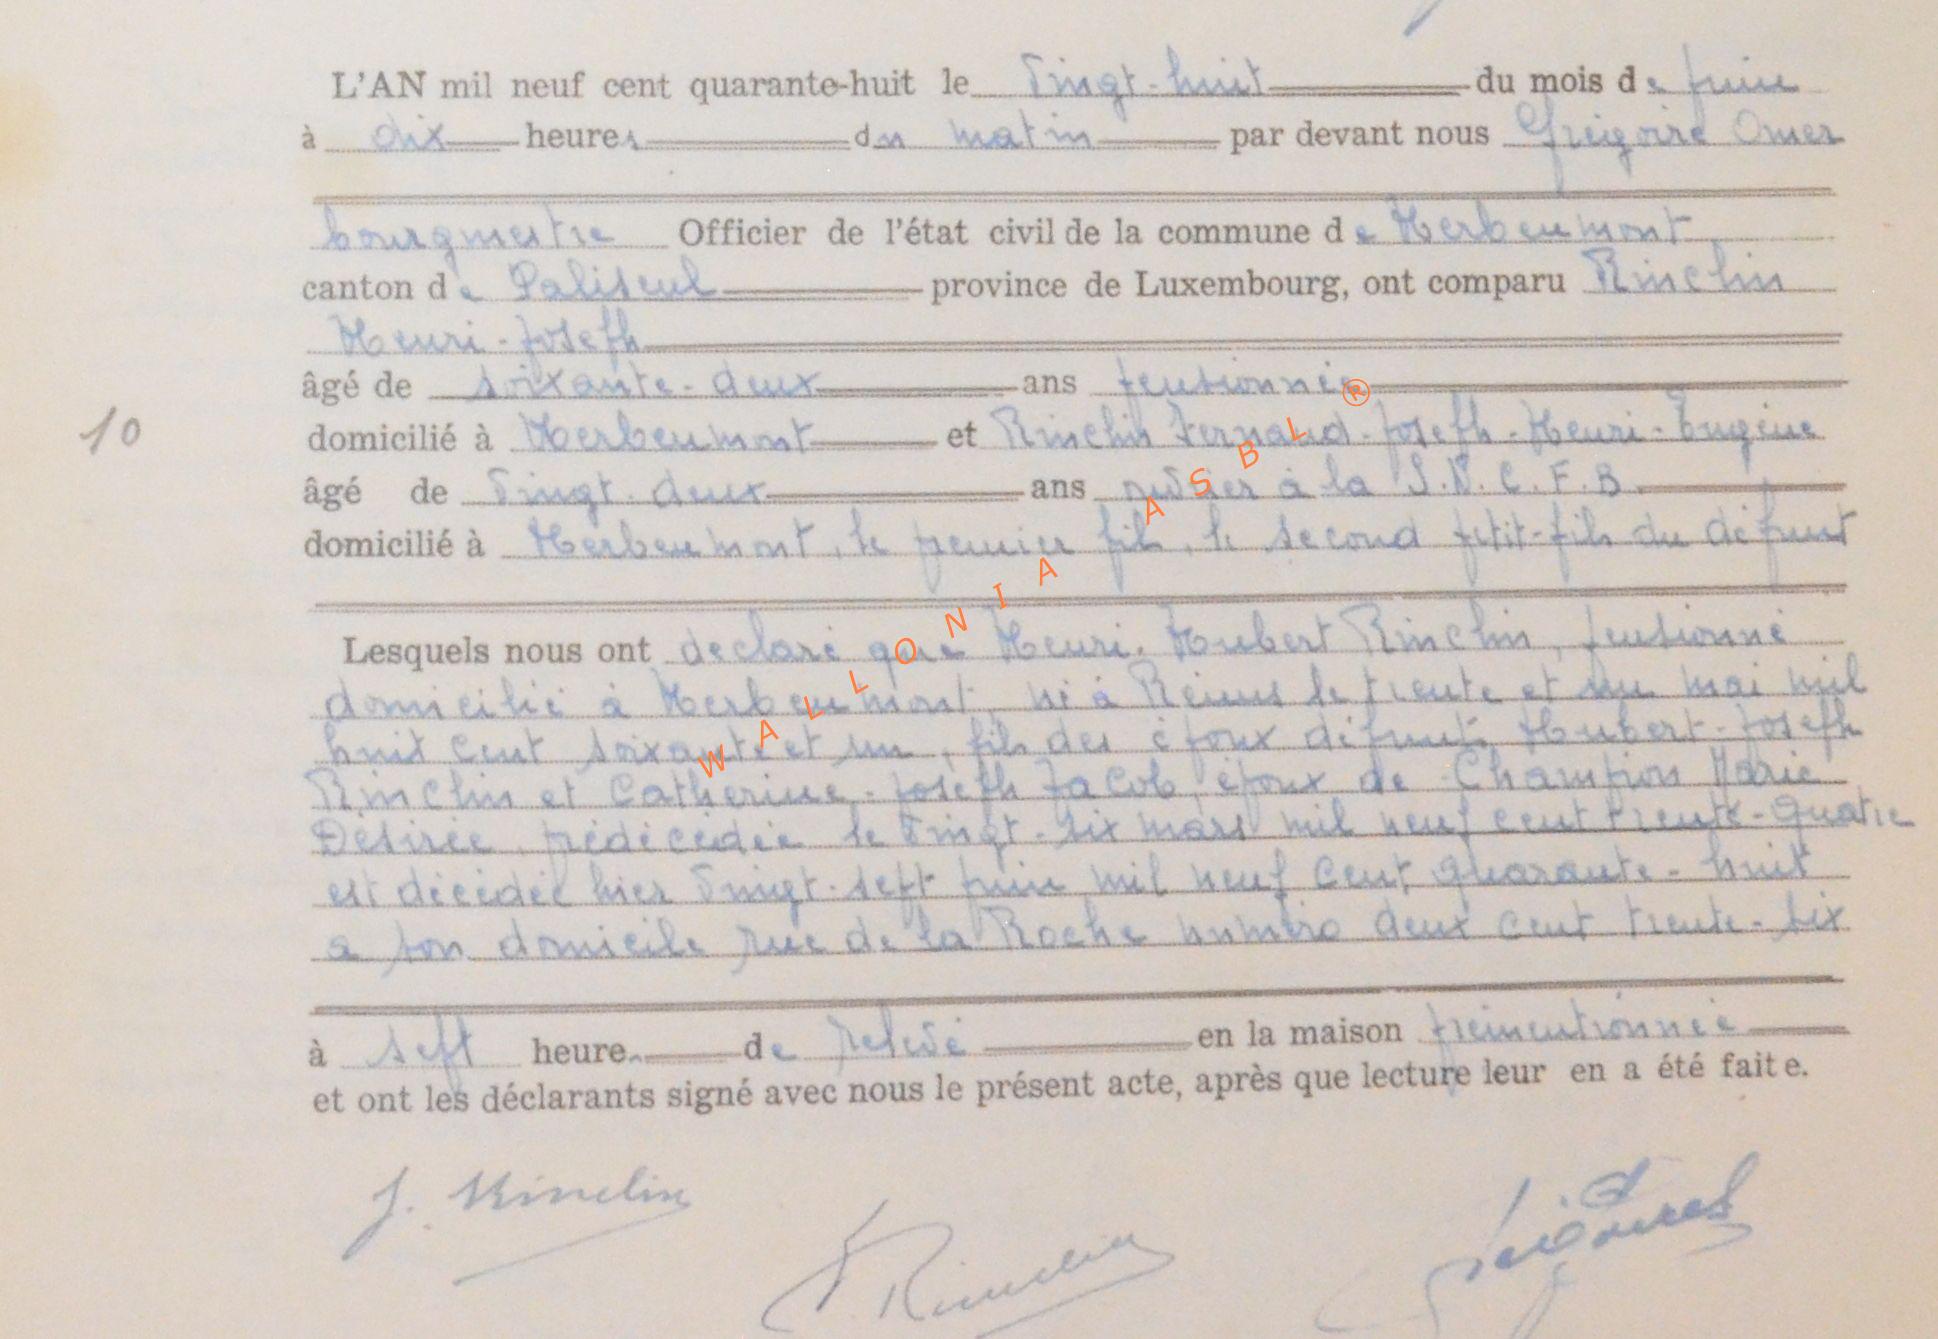 L'AN mil neuf cent quarante-huit le vingt-huit du mois de juin
à dix heures du matin par devant nous Grégoire Omer
bourgmestre Officier de l'état civil de la commune de Herbeumont
canton de Paliseul province de Luxembourg, ont comparu Rinchin
Henri-Joseph
âgé de soixante-deux ans pensionné
10
domicilié à Herbeumont et Rinchin Fernand-Joseph-Henri-Eugène
âgé de vingt-deux ans ouvrier à la S.N.C.F.B.
domicilié à Herbeumont, le premier fils, le second petit-fils du défunt
Lesquels nous ont déclaré que Henri-Hubert Rinchin, pensionné
domicilié à Herbeumont, né à le trente et un mai mil
huit cent soixante et un, fils des époux défunts Hubert-Joseph
Rinchin et Catherine-Joseph Jacob, époux de Champion Marie
Désirée, prédécédée le vingt-six mars mil neuf cent trente-quatre
est décédée hier vingt-sept juin mil neuf cent quarante-huit
a son domicile rue de la Roche numéro deux cent trente-six
à sept heures de relevé en la maison
et ont les déclarants signé avec nous le présent acte, après que lecture leur en a été faite.
J. Rinchin
F. Rinchin
WALLONIA ASBL ®